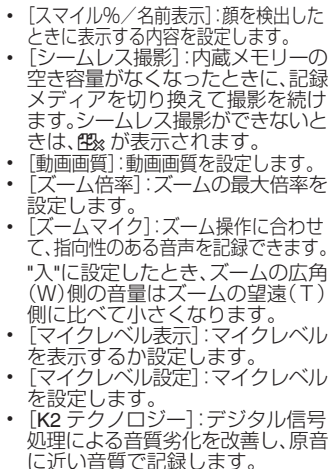 • [スマイル%／名前表示]：顔を検出した
ときに表示する内容を設定します。
• [シームレス撮影]：内蔵メモリーの
空き容量がなくなったときに、記録
メディアを切り換えて撮影を続け
ます。シームレス撮影ができないと
きは、 が表示されます。
• [動画画質]：動画画質を設定します。
• [ズーム倍率]：ズームの最大倍率を
設定します。
• [ズームマイク]：ズーム操作に合わせ
て、指向性のある音声を記録できます。
"入"に設定したとき、ズームの広角
（W）側の音量はズームの望遠（T）
側に比べて小さくなります。
• [マイクレベル表示]：マイクレベル
を表示するか設定します。
• [マイクレベル設定]：マイクレベル
を設定します。
• [K2 テクノロジー]：デジタル信号
処理による音質劣化を改善し、原音
に近い音質で記録します。